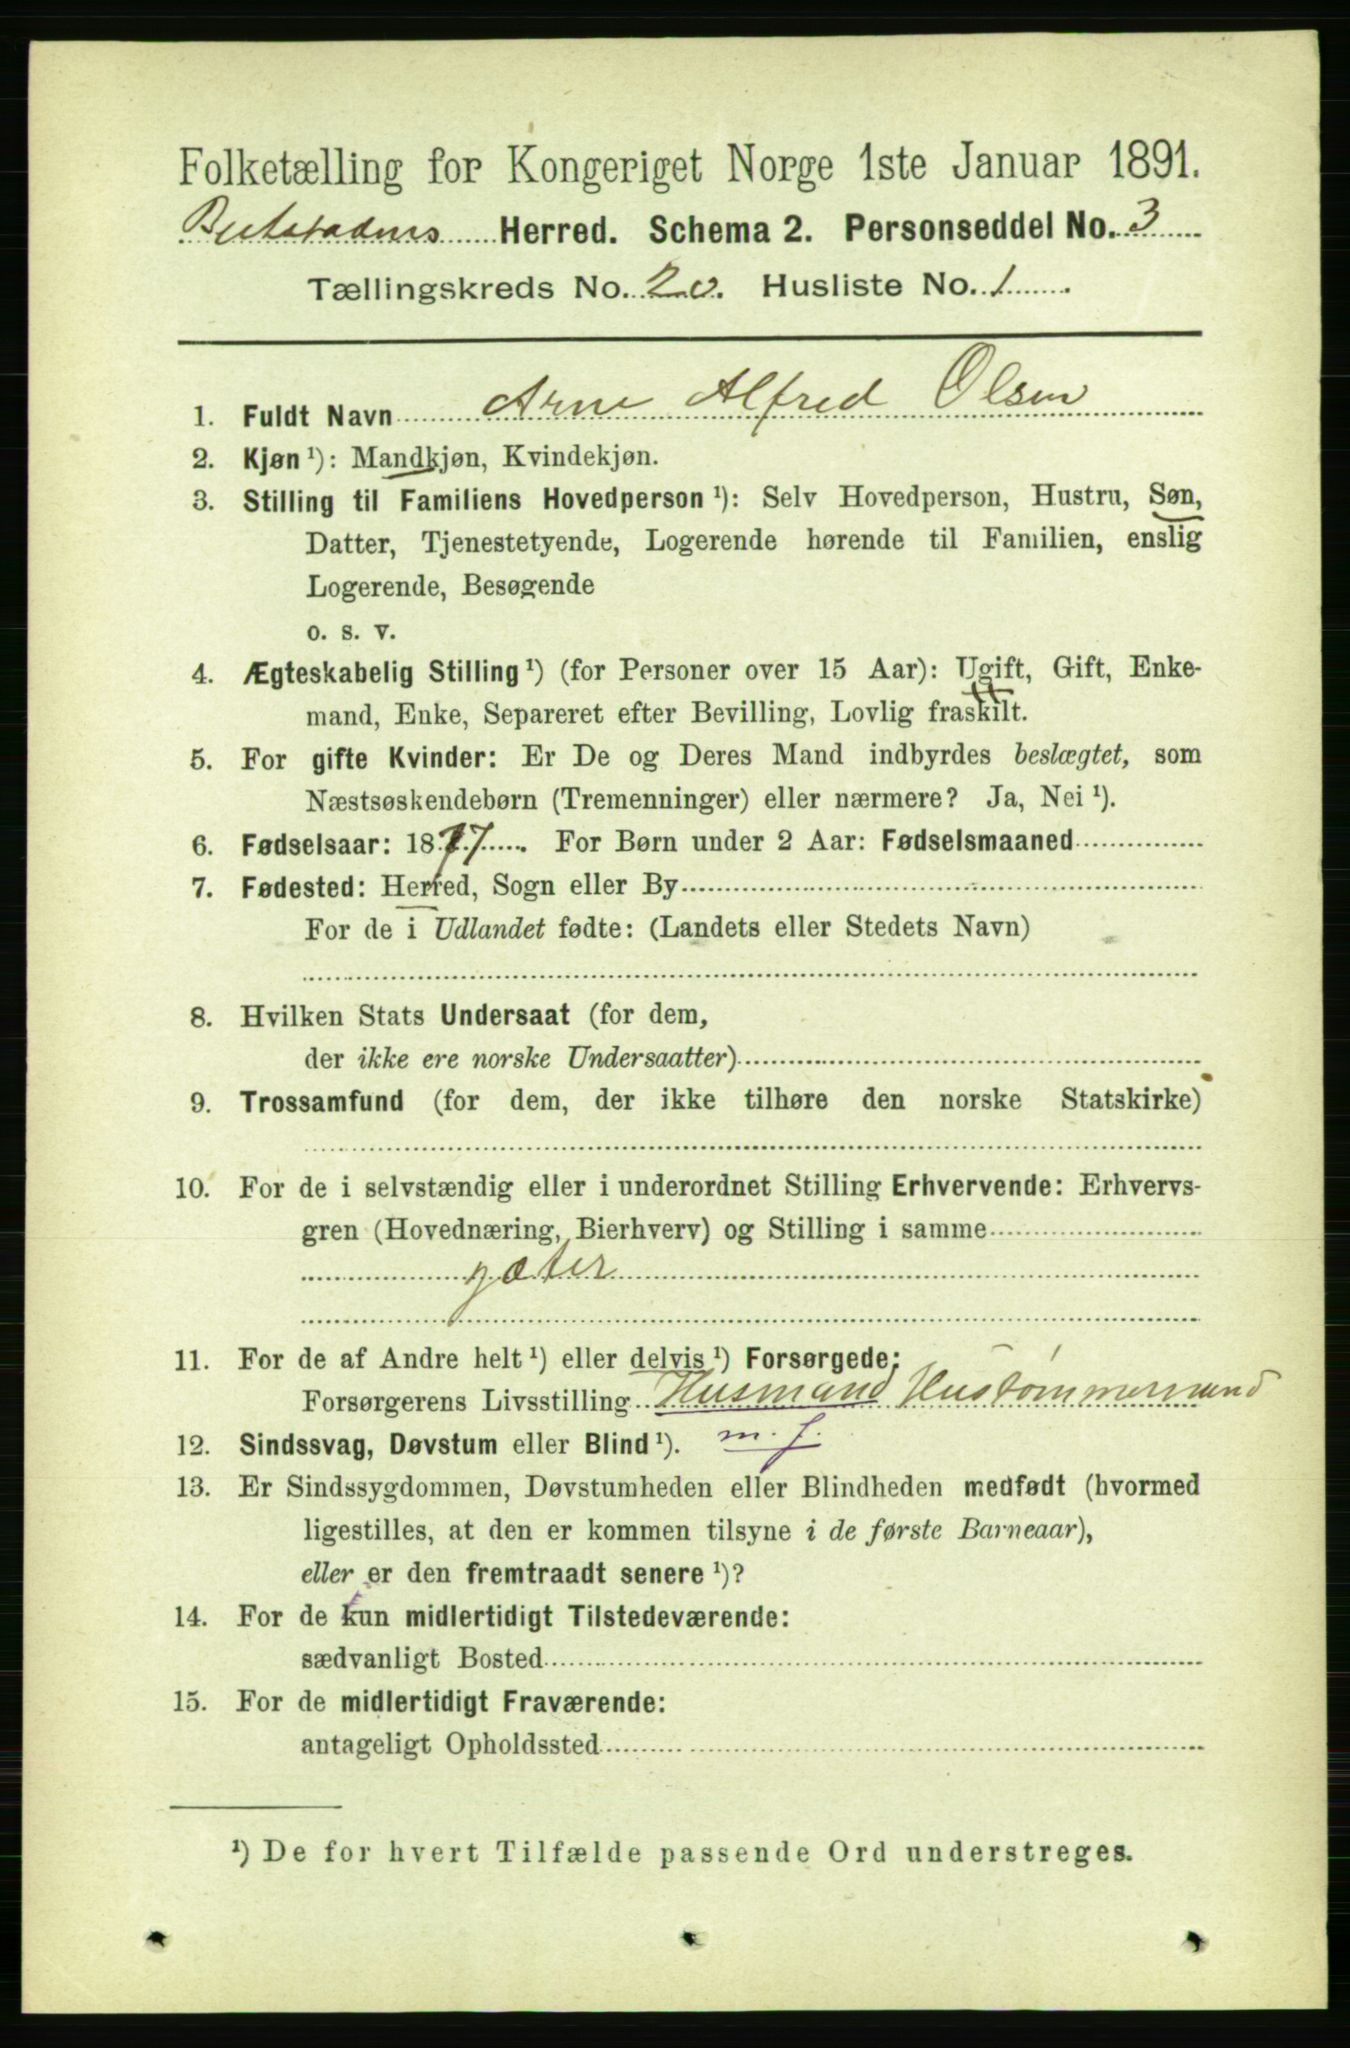 Folketælling for Kongeriget Norge 1ste Januar 1891.
Beitstadens Herred. Schema 2. Personseddel No. 3
Tællingskreds No. 20. Husliste No. 1
1. Fuldt Navn Arne Alfred Olsen
2. Kjøn ¹): Mandkjøn, Kvindekjøn.
3. Stilling til Familiens Hovedperson ¹): Selv Hovedperson, Hustru, Søn,
Datter, Tjenestetyende, Logerende hørende til Familien, enslig
Logerende, Besøgende
o. s. v.
4. Ægteskabelig Stilling ¹) (for Personer over 15 Aar): Ugift, Gift, Enke-
mand, Enke, Separeret efter Bevilling, Lovlig fraskilt.
5. For gifte Kvinder: Er De og Deres Mand indbyrdes beslægtet, som
Næstsøskendebørn (Tremenninger) eller nærmere? Ja, Nei ¹).
6. Fødselsaar: 1877. For Børn under 2 Aar: Fødselsmaaned
7. Fødested: Herred, Sogn eller By
For de i Udlandet fødte: (Landets eller Stedets Navn)
8. Hvilken Stats Undersaat (for dem,
der ikke ere norske Undersaatter)
9. Trossamfund (for dem, der ikke tilhøre den norske Statskirke)
10. For de i selvstændig eller i underordnet Stilling Erhvervende: Erhvervs-
gren (Hovednæring, Bierhverv) og Stilling i samme
gæter
11. For de af Andre helt ¹) eller delvis ¹) Forsørgede:
Forsørgerens Livsstilling Husmand Hustømmermand
12. Sindssvag, Døvstum eller Blind ¹). m. f.
13. Er Sindssygdommen, Døvstumheden eller Blindheden medfødt (hvormed
ligestilles, at den er kommen tilsyne i de første Barneaar),
eller er den fremtraadt senere ¹)?
14. For de kun midlertidigt Tilstedeværende:
sædvanligt Bosted
15. For de midlertidigt Fraværende:
antageligt Opholdssted
¹) De for hvert Tilfælde passende Ord understreges.